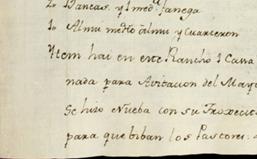 Dancas. y 1 med.ᵃ fanega
1 Almu medio almu y Cuarteron
Ytem hai en este Rancho 1 Cassa
nada para Avitacion del Mayo
Se hizo Nueba con su
para que biban los Pastores.